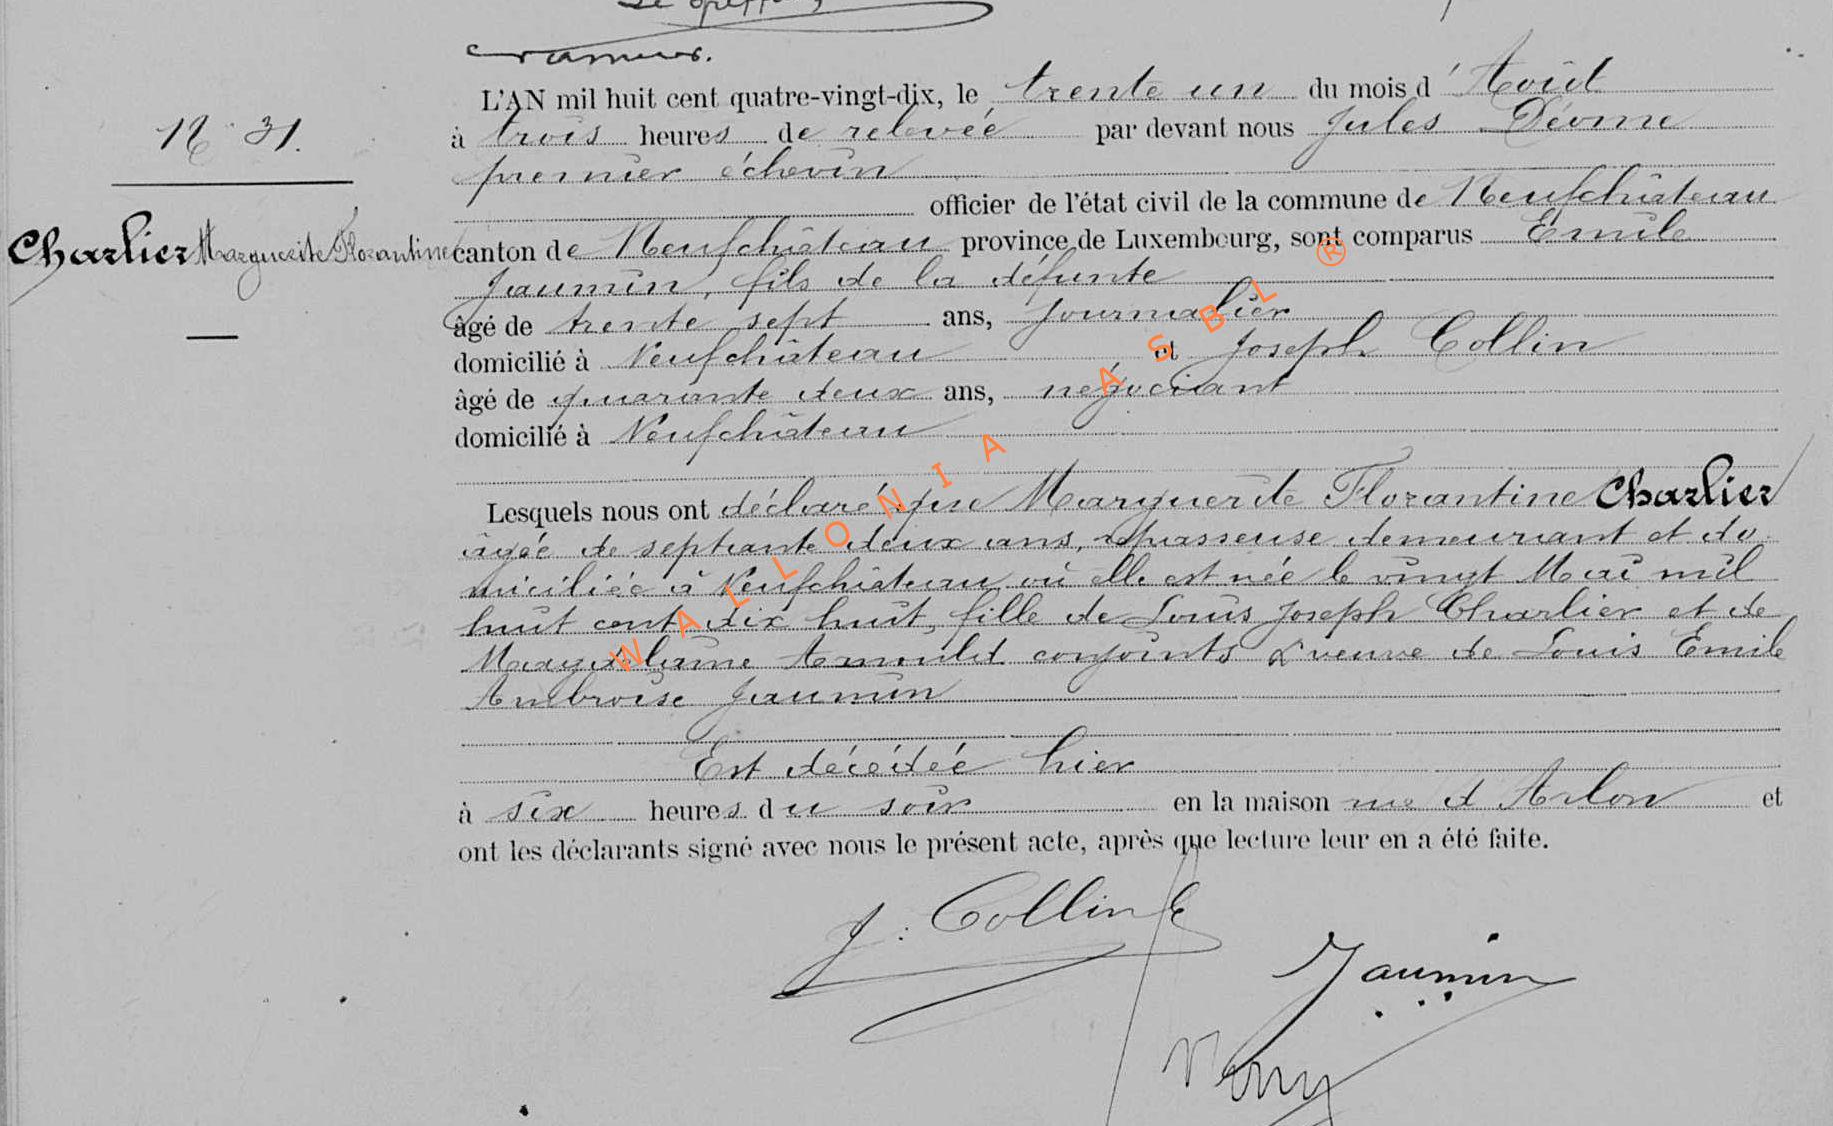 Le Greffier
N° 31.
Charlier Marguerite Florantine
L'AN mil huit cent quatre-vingt-dix, le trente un du mois d'Août
à trois heures de relevée par devant nous Jules Déome
premier échevin
officier de l'état civil de la commune de Neufchâteau
canton de Neufchâteau province de Luxembourg, sont comparus Emile
Jaumin, fils de la défunte
âgé de trente sept ans, journalier
domicilié à Neufchâteau et Joseph Collin
âgé de quarante deux ans, négociant
domicilié à Neufchâteau
Lesquels nous ont déclaré que Marguerite Florantine Charlier
agée de septante deux ans, repasseuse demeurant et do
miciliée à Neufchâteau où elle est née le vingt Mai mil
huit cent dix huit, fille de Louis Joseph Charlier et de
Magdelaine Arnould conjoints & veuve de Louis Emile
Ambroise Jaumin
Est décédée hier
à six heures du soir en la maison rue d'Arlon et
ont les déclarants signé avec nous le présent acte, après que lecture leur en a été faite.
J. Collin
E Jaumin
WALLONIA ASBL ®